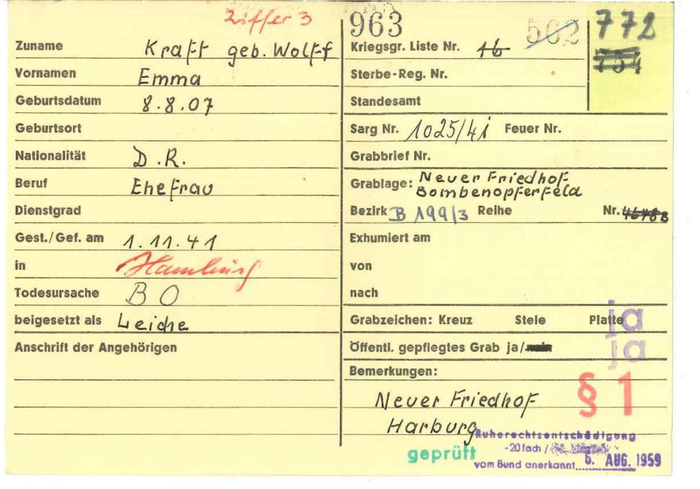 Ziffer 3
963
562
772
754
Zuname Kraft geb. Wolff
Vornamen Emma
Geburtsdatum 8.8.07
Geburtsort
Nationalität D.R.
Beruf Ehefrau
Dienstgrad
Gest./Gef. am 1.11.41
in Hamburg
Todesursache BO
beigesetzt als Leiche
Anschrift der Angehörigen
Kriegsgr. Liste Nr. 16
Sterbe-Reg. Nr.
Standesamt
Sarg Nr. 1025/41 Feuer Nr.
Grabbrief Nr.
Grablage: Neuer Friedhof
Bombenopferfeld
Bezirk B 199/3 Reihe Nr.
Exhumiert am
von
nach
Grabzeichen: Kreuz Stele Platte ja
Öffentl. gepflegtes Grab ja/nein ja
Bemerkungen:
§ 1
Neuer Friedhof
Harburg
geprüft
Ruherechtsentschädigung
-20fach /
vom Bund anerkannt 6. AUG. 1959